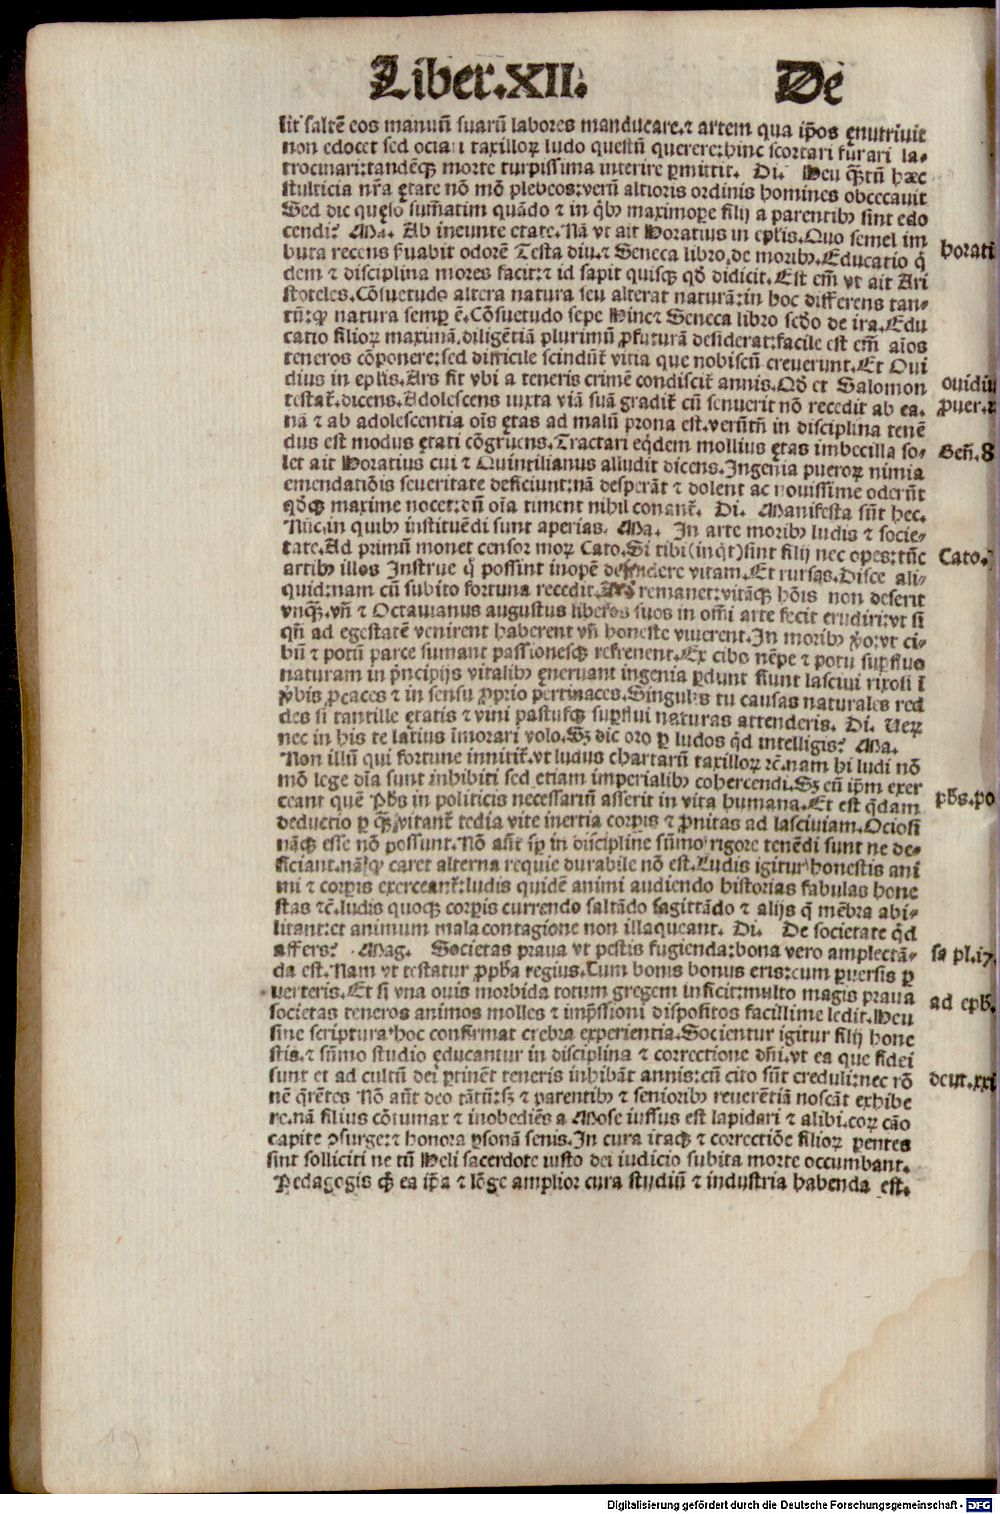 Liber.XII. De
lit saltē eos manuū suarū labores manducare.⁊ artem qua ip̄os ęnutriuit
non edocet sed ociari taxilloꝝ ludo questū querere:hinc scortari furari la-
trocinari:tandēqꝫ morte turpissima interire ꝑmittit. Di. Heu qͣtū hæc
stulticia nr̄a ętate nō mō plebeos:verū altioris ordinis homines obcecauit
Sed dic quęso sum̄atim quādo ⁊ in qͥbꝰ maximope filij a parentibꝰ sint edo
cendi? Ma. Ab ineunte etate. Nā vt ait Horatius in ep̄lis. Quo semel im
buta recens ẜuabit odorē Testa diu.⁊ Seneca libro de moribꝰ. Educatio qͥ
dem ⁊ disciplina mores facit:⁊ id sapit quisqꝫ qd̄ didicit. Est em̄ vt ait Ari
stoteles. Cōsuetudo altera natura seu alterat naturā:in hoc differens tan-
tū:ꝙ natura semꝑ ē. Cōsuetudo sepe Hinc⁊ Seneca libro scd̄o de ira. Edu
catio filioꝝ maximā diligētiā plurimū ꝓfuturā desiderat:facile est em̄ aīos
teneros cōponere:sed difficile scindūt̄ vitia que nobiscū creuerunt. Et Oui
dius in ep̄lis. Ars fit vbi a teneris crimē condiscit̄ annis. Qd̄ et Salomon
testat̄. dicens. Adolescens iuxta viā suā gradit̄ cū senuerit nō recedit ab ea.
nā ⁊ ab adolescentia oīs ętas ad malū prona est. verūtn̄ in disciplina tenē
dus est modus ętati cōgruens. Tractari eqͥdem mollius ętas imbecilla so-
let ait Horatius cui ⁊ Quintilianus alludit dicens. Ingenia pueroꝝ nimia
emendatiōis seueritate deficiunt:nā desperāt ⁊ dolent ac nouissime oderūt
qd̄qꝫ maxime nocet:dū oīa timent nihil conant̄. Di. Manifesta sūt hec.
Nūc in quibꝰ instituēdi sunt aperias. Ma. In arte moribꝰ ludis ⁊ socie-
tate. Ad primū monet censor moꝝ Cato. Si tibi (inqͥt) sint filij nec opes:tūc
artibꝰ illos Instrue qͥ possint inopē defendere vitam. Et rursas. Disce ali-
quid:nam cū subito fortuna recedit. Ars remanet:vitāqꝫ hōis non deserit
vnqͣ. vn̄ ⁊ Octauianus augustus liberos suos in om̄i arte fecit erudiri:vt si
qn̄ ad egestatē venirent haberent vn̄ honeste viuerent. In moribꝰ ꝟo:vt ci-
bū ⁊ potū parce sumant passionesqꝫ refrenent. Ex cibo nēpe ⁊ potu suꝑfluo
naturam in pͥncipijs vitalibꝰ ęneruant ingenia ꝑdunt fiunt lasciui rixosi ī
ꝟbis ꝓcaces ⁊ in sensu ꝓprio pertinaces. Singulis tu causas naturales red
des si tantille ętatis ⁊ vini pastusqꝫ suꝑflui naturas attenderis. Di. Ueꝝ
nec in his te latius īmorari volo. Sꝫ dic oro ꝑ ludos qͥd intelligis? Ma.
Non illū qui fortune innitit̄. vt ludus chartarū taxilloꝝ ⁊c̄. nam hi ludi nō
mō lege dīa sunt inhibiti sed etiam imperialibꝰ cohercendi. Sꝫ eū ip̄m exer
ceant quē Ph̄s in politicis necessariū asserit in vita humana. Et est qͥdam
deductio ꝑ qͣ vitant̄ tedia vite inertia corpis ⁊ ꝓnitas ad lasciuiam. Ociosi
nāqꝫ esse nō possunt. Nō aūt sꝑ in discipline sūmo rigore tenēdi sunt ne de-
ficiant. nā qꝙ caret alterna requie durabile nō est. Ludis igitur honestis ani
mi ⁊ corpis exerceant̄:ludis quidē animi audiendo historias fabulas hone
stas ⁊c̄. ludis quoqꝫ corpis currendo saltādo sagittādo ⁊ alijs qͥ mēbra abi-
litant:et animum mala contagione non illaqueant. Di. De societate qͥd
affers? Mag. Societas praua vt pestis fugienda:bona vero amplectā-
da est. Nam vt testatur ꝓph̄a regius. Cum bonis bonus eris:cum ꝑuersis ꝑ
uerteris. Et si vna ouis morbida totum gregem inficit:multo magis praua
societas teneros animos molles ⁊ imp̄ssioni dispositos facillime ledit. Heu
sine scriptura hoc confirmat crebra experientia. Socientur igitur filij hone
stis. ⁊ sūmo studio educantur in disciplina ⁊ correctione dn̄i. vt ea que fidei
sunt et ad cultū dei ꝑtinēt teneris inhibāt annis:cū cito sūt creduli:nec rō
nē qͥrētes Nō aūt deo tātū:sꝫ ⁊ parentibꝰ ⁊ senioribꝰ reuerētiā noscāt exhibe
re. nā filius cōtumax ⁊ inobediēs a Mose iussus est lapidari ⁊ alibi. corꝝ cāo
capite ꝯsurge:⁊ honora ꝑsonā senis. In cura itaqꝫ ⁊ correctiōe filioꝝ pentes
sint solliciti ne cū Heli sacerdote iusto dei iudicio subita morte occumbant.
Pedagogis qꝫ ea ip̄a ⁊ lōge amplior cura studiū ⁊ industria habenda est.
horati
ouidiu
ꝓuer.
Geñ. 8
Cato.
ph̄s. po
sa pl. 17.
ad eph̄.
deut. xxi
Digitalisierung gefördert durch die Deutsche Forschungsgemeinschaft - DFG